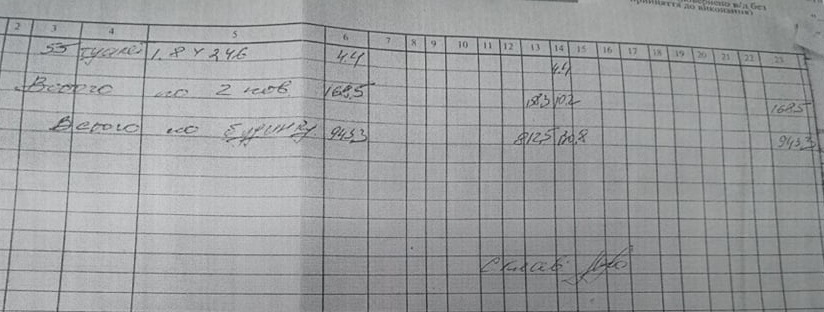 прийняття до виконання)
2 3 4 5 6 7 8 9 10 11 12 13 14 15 16 17 18 19 20 21 22 23
55 туалет 1.8 х 2.46 4.4 4.4
Всього по 2 пов 168.5 58.3 110.2 168.5
Всього по будинку 943.3 812.5 130.8 943.3
Склав